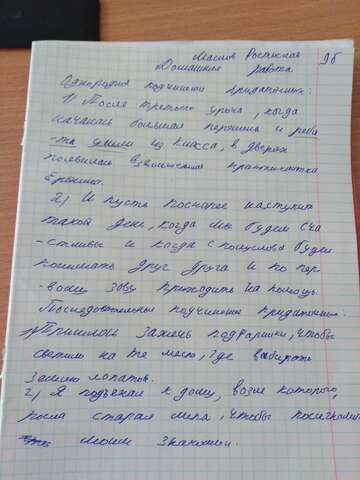 Маслов Ростислав 9б
Домашняя работа
Однородное подчинение придаточных:
1) После третьего урока, когда
началась большая перемена и реба
-та ушли из класса, в дверях
появилась взволнованная практикантка
Ерохина.
2) И пусть поскорее наступит
такой день, когда мы будем сча
-стливы и когда с полуслова будем
понимать друг друга и по пер
-вому зову приходить на помощь.
Последовательное подчинение придаточных.
1) Пришлось зажечь подфарники, чтобы
светило на то место, где выбирать
землю лопатой.
2) Я подъехал к дому, возле которого,
росла старая липа, чтобы
моим знакомым.